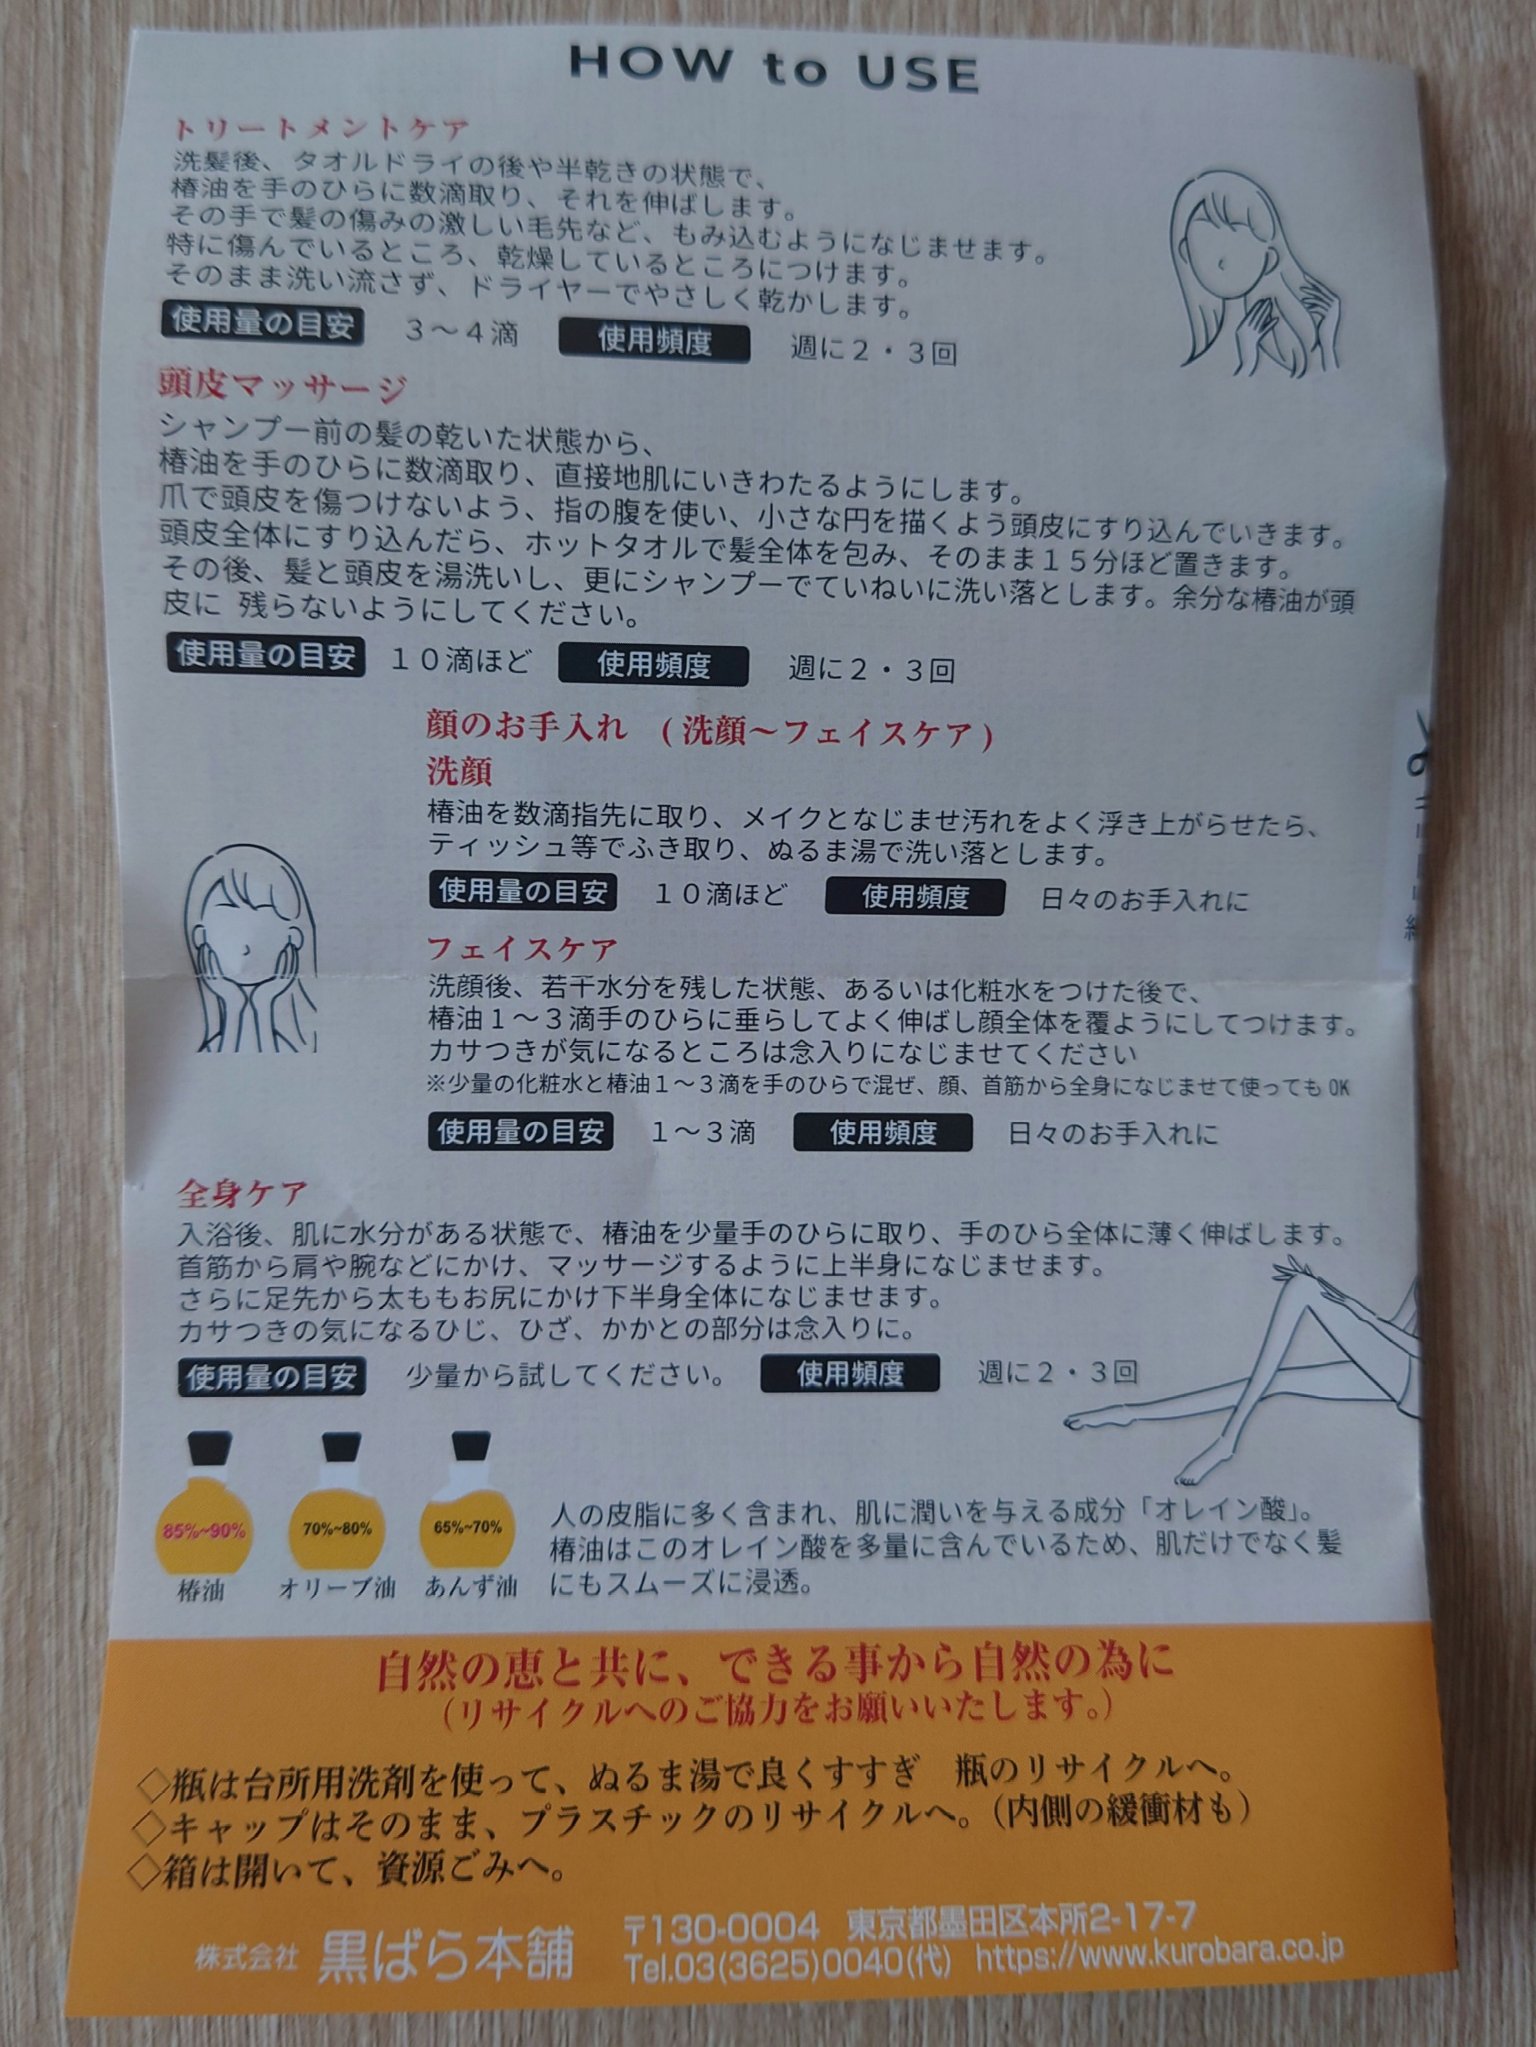 HOW to USE
トリートメントケア
洗髪後、タオルドライの後や半乾きの状態で、
椿油を手のひらに数滴取り、それを伸ばします。
その手で髪の傷みの激しい毛先など、もみ込むようになじませます。
特に傷んでいるところ、乾燥しているところにつけます。
そのまま洗い流さず、ドライヤーでやさしく乾かします。
使用量の目安 3〜4滴 使用頻度 週に2・3回
頭皮マッサージ
シャンプー前の髪の乾いた状態から、
椿油を手のひらに数滴取り、直接地肌にいきわたるようにします。
爪で頭皮を傷つけないよう、指の腹を使い、小さな円を描くよう頭皮にすり込んでいきます。
頭皮全体にすり込んだら、ホットタオルで髪全体を包み、そのまま15分ほど置きます。
その後、髪と頭皮を湯洗いし、更にシャンプーでていねいに洗い落とします。余分な椿油が頭
皮に 残らないようにしてください。
使用量の目安 10滴ほど 使用頻度 週に2・3回
顔のお手入れ (洗顔〜フェイスケア)
洗顔
椿油を数滴指先に取り、メイクとなじませ汚れをよく浮き上がらせたら、
ティッシュ等でふき取り、ぬるま湯で洗い落とします。
使用量の目安 10滴ほど 使用頻度 日々のお手入れに
フェイスケア
洗顔後、若干水分を残した状態、あるいは化粧水をつけた後で、
椿油1〜3滴手のひらに垂らしてよく伸ばし顔全体を覆ようにしてつけます。
カサつきが気になるところは念入りになじませてください
※少量の化粧水と椿油1〜3滴を手のひらで混ぜ、顔、首筋から全身になじませて使ってもOK
使用量の目安 1〜3滴 使用頻度 日々のお手入れに
全身ケア
入浴後、肌に水分がある状態で、椿油を少量手のひらに取り、手のひら全体に薄く伸ばします。
首筋から肩や腕などにかけ、マッサージするように上半身になじませます。
さらに足先から太ももお尻にかけ下半身全体になじませます。
カサつきの気になるひじ、ひざ、かかとの部分は念入りに。
使用量の目安 少量から試してください。 使用頻度 週に2・3回
85%~90% 70%~80% 65%~70%
椿油 オリーブ油 あんず油
人の皮脂に多く含まれ、肌に潤いを与える成分「オレイン酸」。
椿油はこのオレイン酸を多量に含んでいるため、肌だけでなく髪
にもスムーズに浸透。
自然の恵と共に、できる事から自然の為に
(リサイクルへのご協力をお願いいたします。)
◇瓶は台所用洗剤を使って、ぬるま湯で良くすすぎ 瓶のリサイクルへ。
◇キャップはそのまま、プラスチックのリサイクルへ。(内側の緩衝材も)
◇箱は開いて、資源ごみへ。
株式会社 黒ばら本舗
〒130-0004 東京都墨田区本所2-17-7
Tel.03(3625)0040(代) https://www.kurobara.co.jp